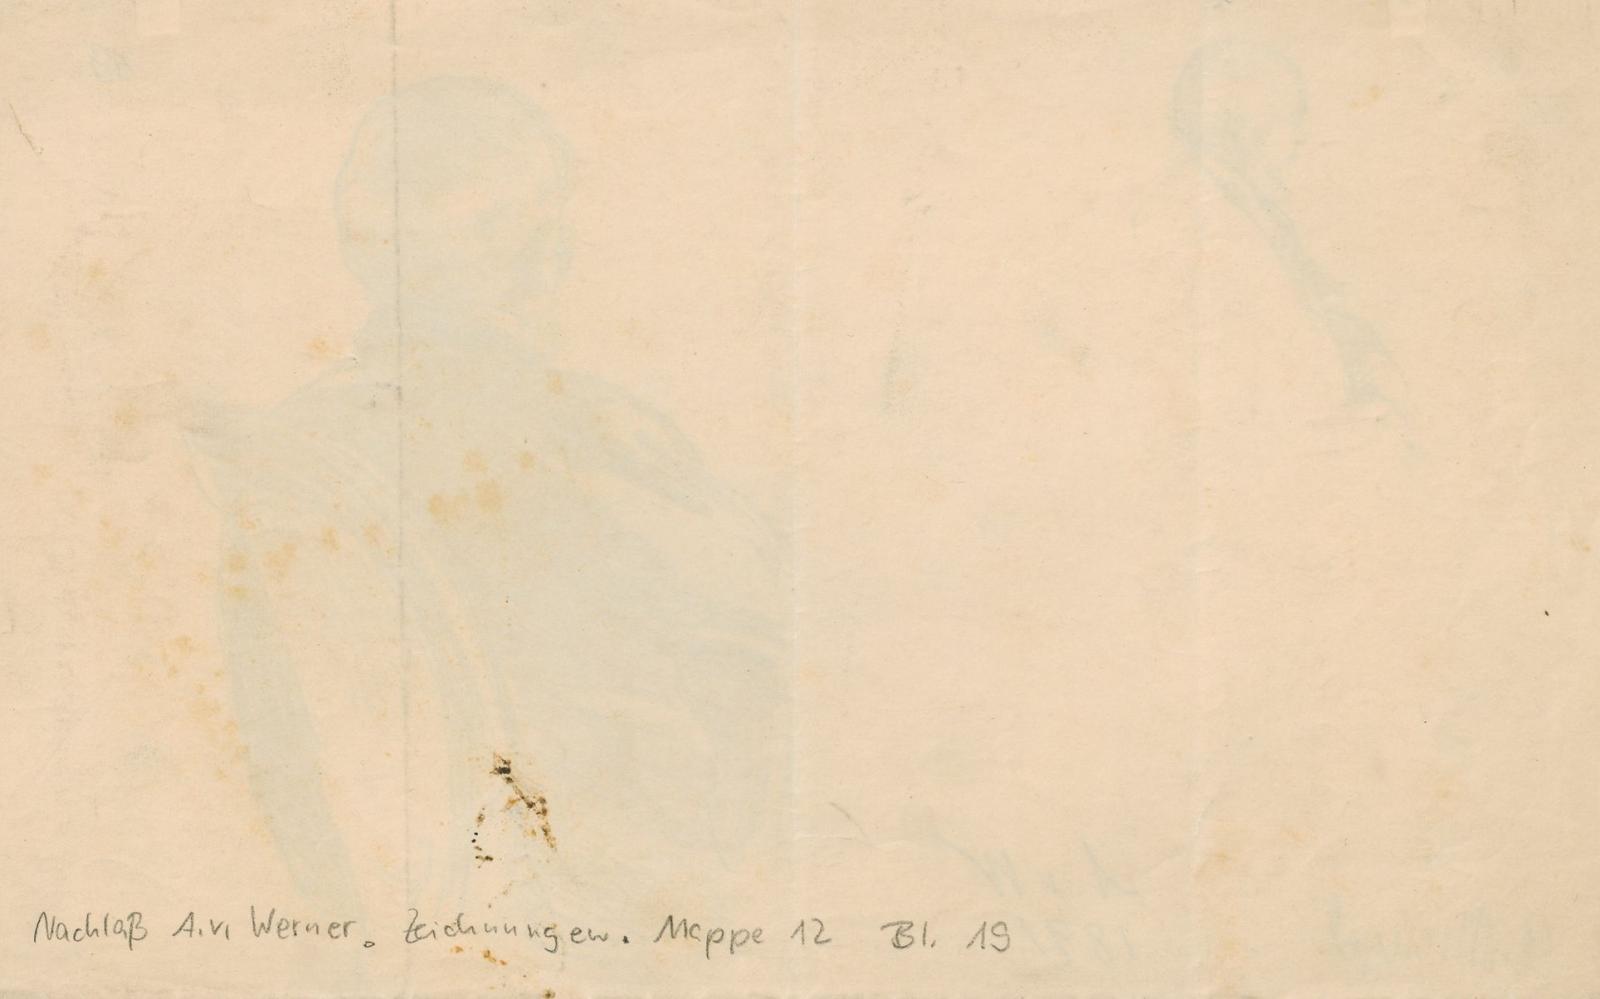 Nachlaß A.v. Werner. Zeichnungen. Mappe 12 Bl. 19